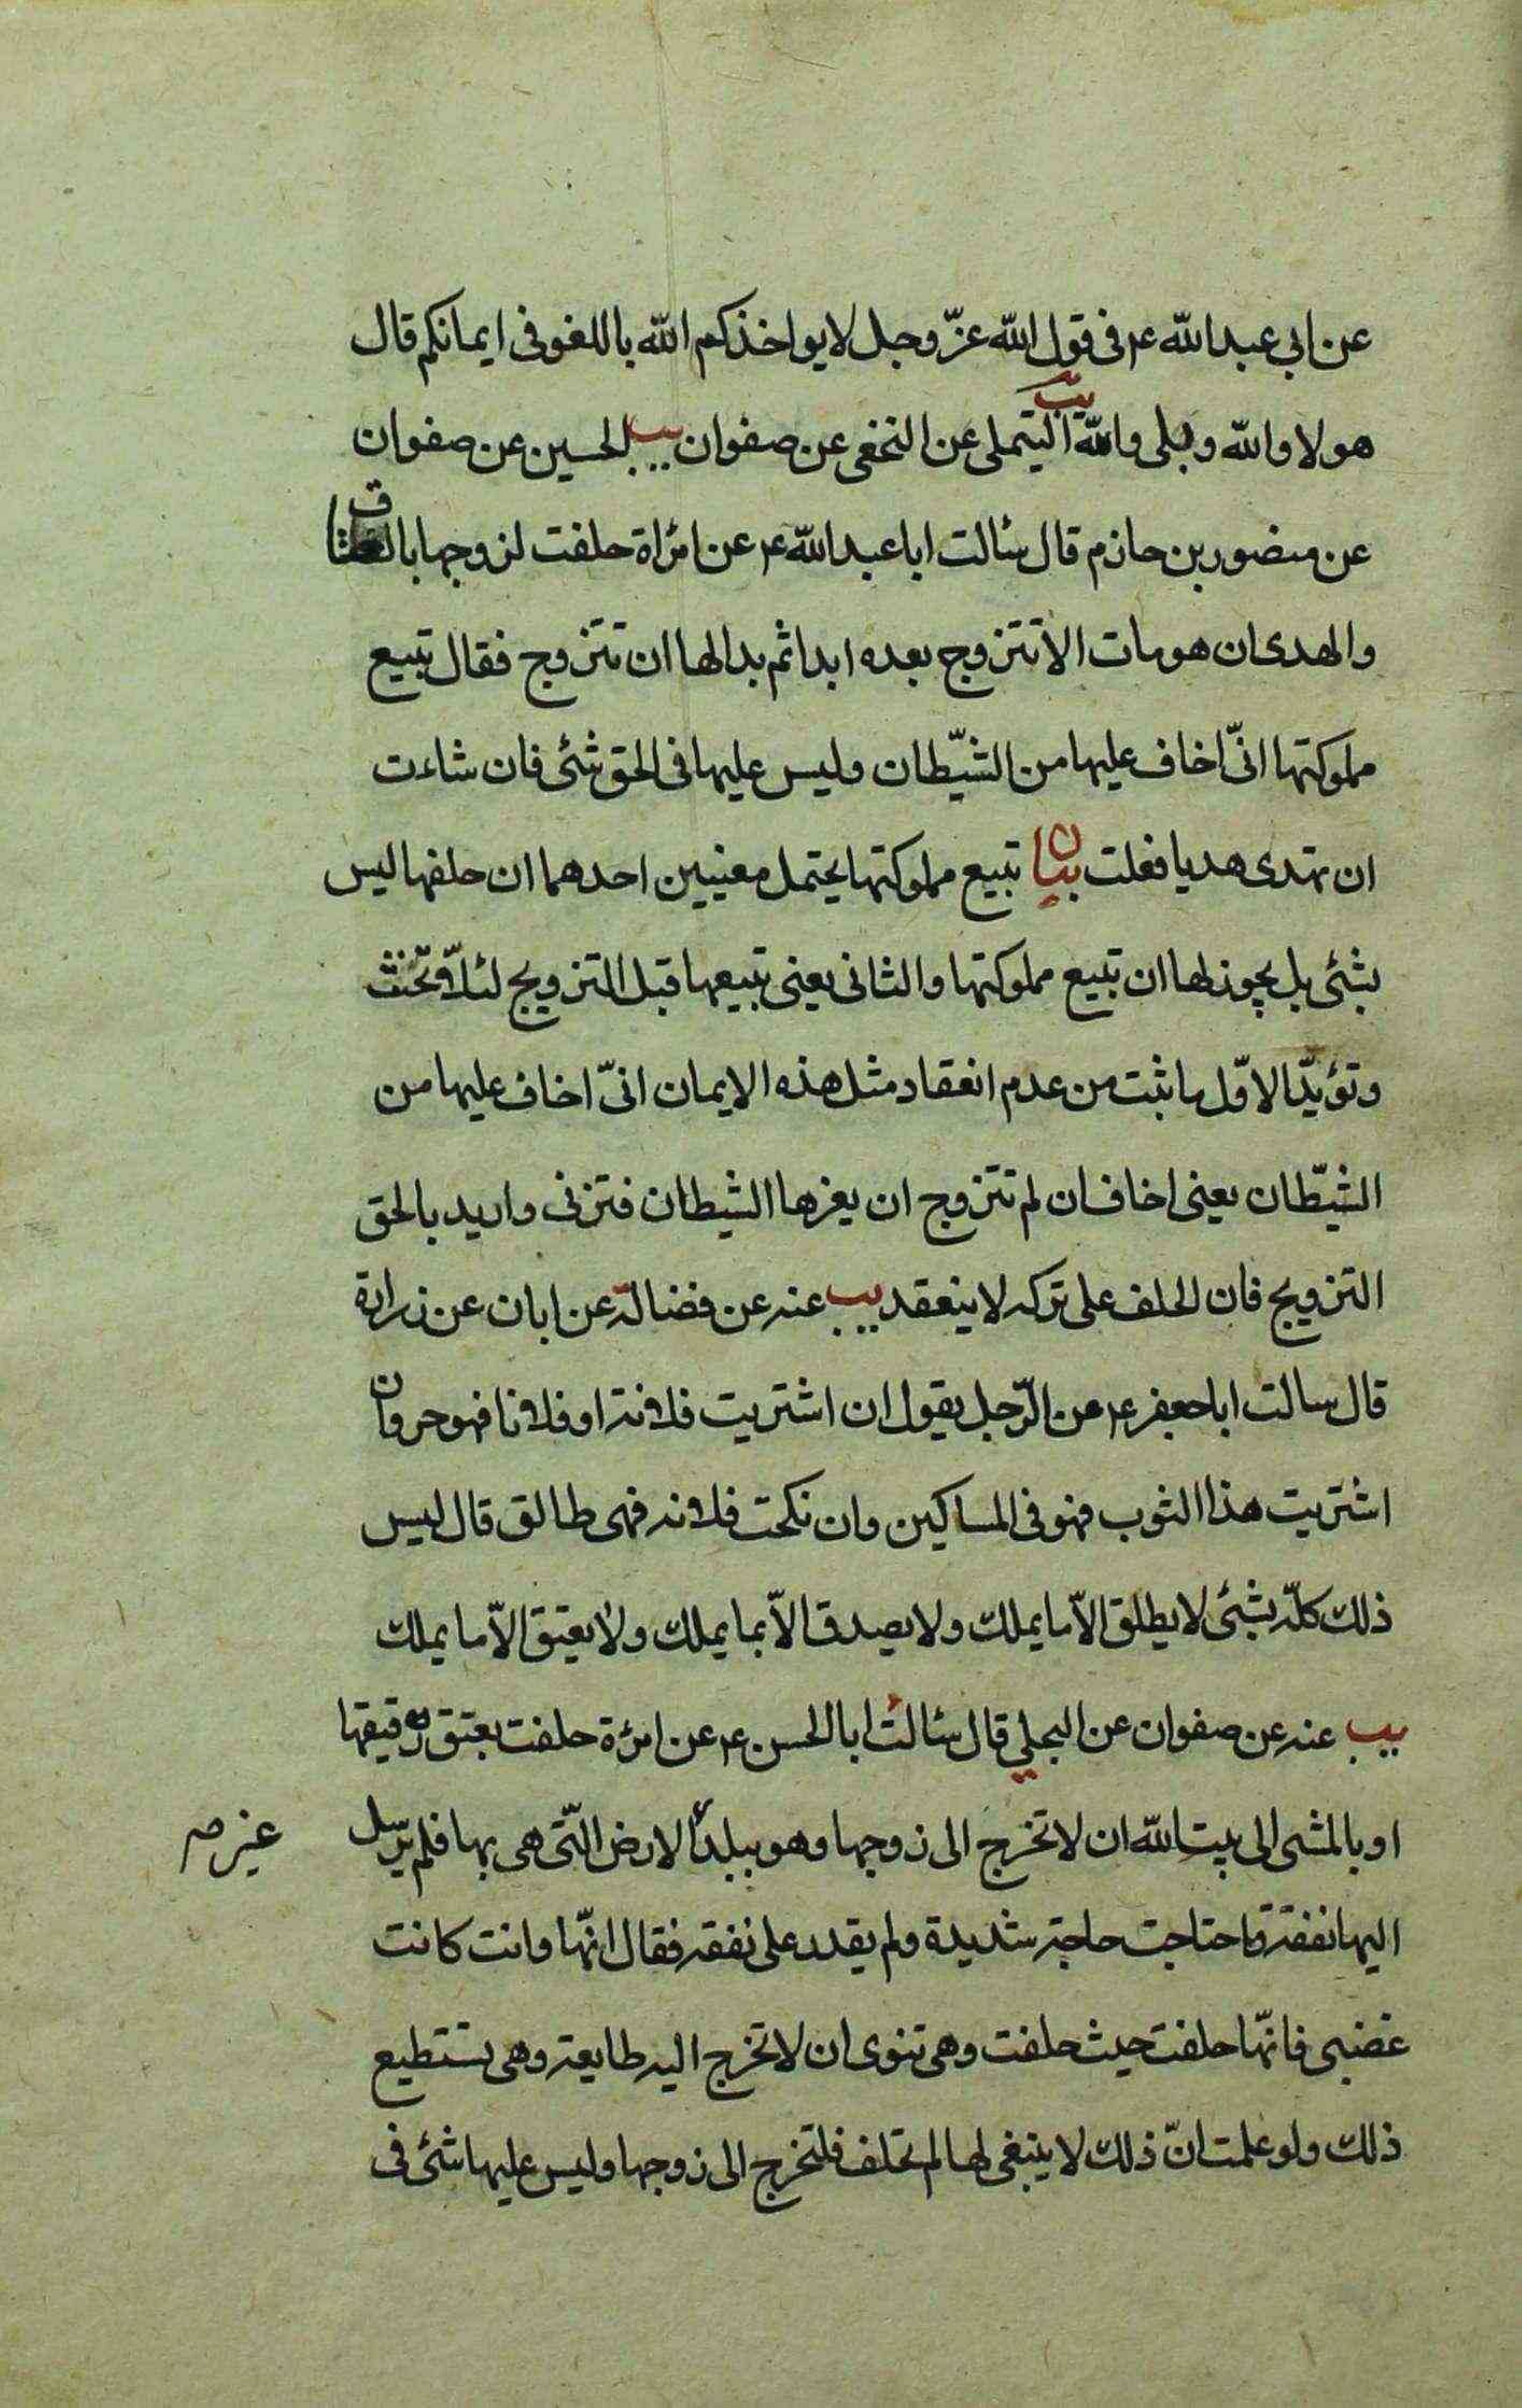 عن ابى عبد الله ع فى قول الله عزّ وجل لا يواخذكم الله باللغو فى ايمانكم قال
هو لا والله وبلى والله يب التيملى عن النخعى عن صفوان يب الحسين عن صفوان
عن منصور بن حازم قال سئالت ابا عبد الله ع عن امرٔاة حلفت لزوجها بالعتاق
والهدى ان هو مات الا تتزوج بعده ابدا ثم بدا لها ان تتزوج فقال تبيع
مملوكتها انّى اخاف عليها من الشيّطان وليس عليها فى الحق شئى فان شاءت
ان تهدى هديا فعلت بيان تبيع مملوكتها يحتمل معنيين احدهما ان حلفها ليس
بشئى بل يجوز لها ان تبيع مملوكتها والثانى يعنى تبيعها قبل التزويج لئلّا تحنث
وتؤيّد الاوّل ما ثبت من عدم انعقاد مثل هذه الايمان انّى اخاف عليها من
الشيّطان يعنى اخاف ان لم تتزوج ان يغرها الشيطان فتزنى واريد بالحق
التزويج فان الحلف على تركه لا ينعقد يب عنه عن فضالة عن ابان عن زرارة
قال سالت ابا جعفر ع عن الرّجل يقول ان اشتريت فلانة او فلانا فهو حر وان
اشتريت هذا الثوب فهو فى المساكين وان نكحت فلانه فهى طالق قال ليس
ذلك كلّه بشئى لا يطلق الاّ ما يملك ولا يصدق الاّ بما يملك ولا يعتق الاّ ما يملك
يب عنه عن صفوان عن البجلي قال سئالت ابا الحسن ع عن امرٔة حلفت بعتق رقيقها
او بالمشى الى بيت الله ان لا تخرج الى زوجها وهو ببلد الارض الّتى هى بها فلم يرسل
غير صر
اليها نفقة فاحتاجت حاجة شديدة ولم يقدر على نفقة فقال انّها وانت كانت
غضبى فانّها حلفت حيث حلفت وهى تنوى ان لا تخرج اليه طايعة وهى تستطيع
ذلك ولو علمت انّ ذلك لا ينبغى لها لم تحلف فلتخرج الى زوجها وليس عليها شئى فى